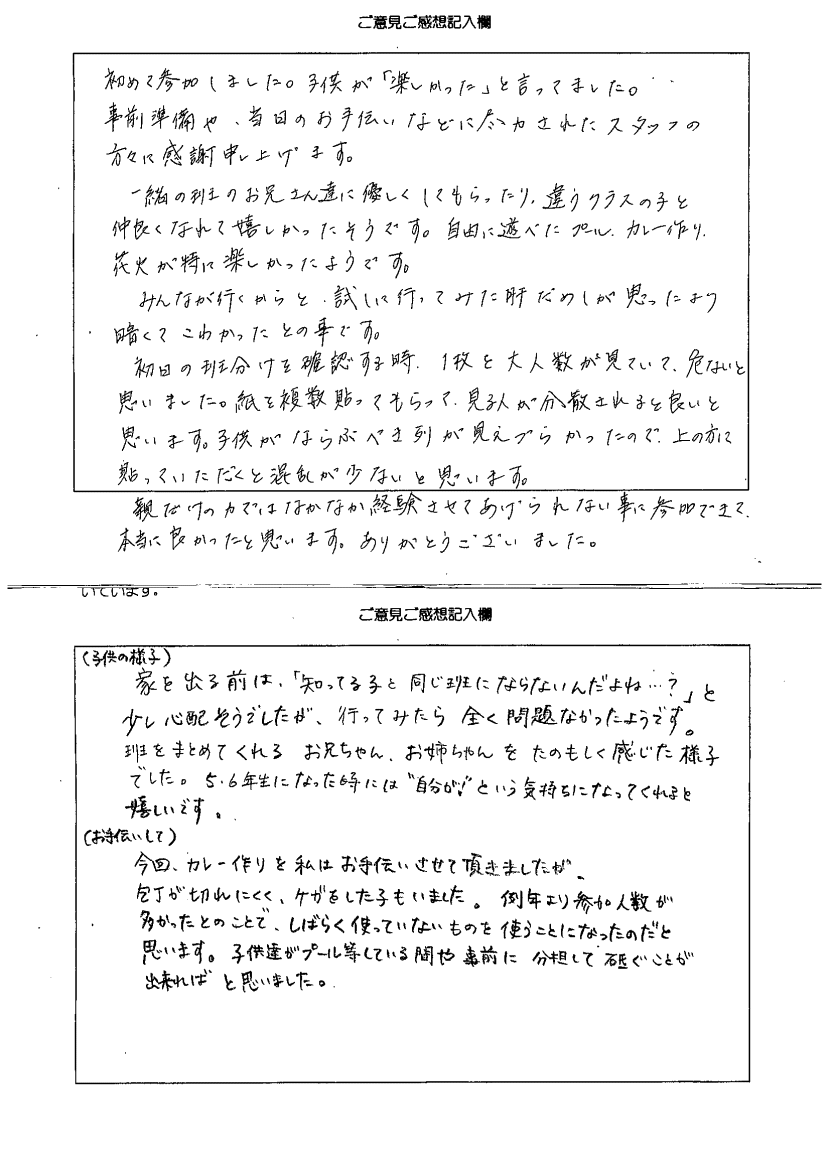 ご意見ご感想記入欄
初めて参加しました。子供が「楽しかった」と言ってました。
事前準備や、当日のお手伝いなどに尽力されたスタッフの
方々に感謝申し上げます。
一緒の班のお兄さん達に優しくしてもらったり、違うクラスの子と
仲良くなれて嬉しかったそうです。自由に遊べたプール、カレー作り、
花火が特に楽しかったようです。
みんなが行くからと、試しに行ってみた肝だめしが思ったより
暗くてこわかったとの事です。
初日の班分けを確認する時、1枚を大人数が見ていて、危ないと
思いました。紙を複数貼ってもらって、見る人が分散されると良いと
思います。子供がならぶべき列が見えづらかったので、上の方に
貼っていただくと混乱が少ないと思います。
親だけの力ではなかなか経験させてあげられない事に参加できて、
本当に良かったと思います。ありがとうございました。
いています。
ご意見ご感想記入欄
(子供の様子)
家を出る前は、「知ってる子と同じ班にならないんだよね…?」と
少し心配そうでしたが、行ってみたら全く問題なかったようです。
班をまとめてくれるお兄ちゃん、お姉ちゃんをたのもしく感じた様子
でした。5・6年生になった時には"自分が!"という気持ちになってくれると
嬉しいです。
(お手伝いして)
今回、カレー作りを私はお手伝いさせて頂きましたが、
包丁が切れにくく、ケガをした子もいました。例年より参加人数が
多かったとのことで、しばらく使っていないものを使うことになったのだと
思います。子供達がプール等している間や事前に分担して砥ぐことが
出来ればと思いました。